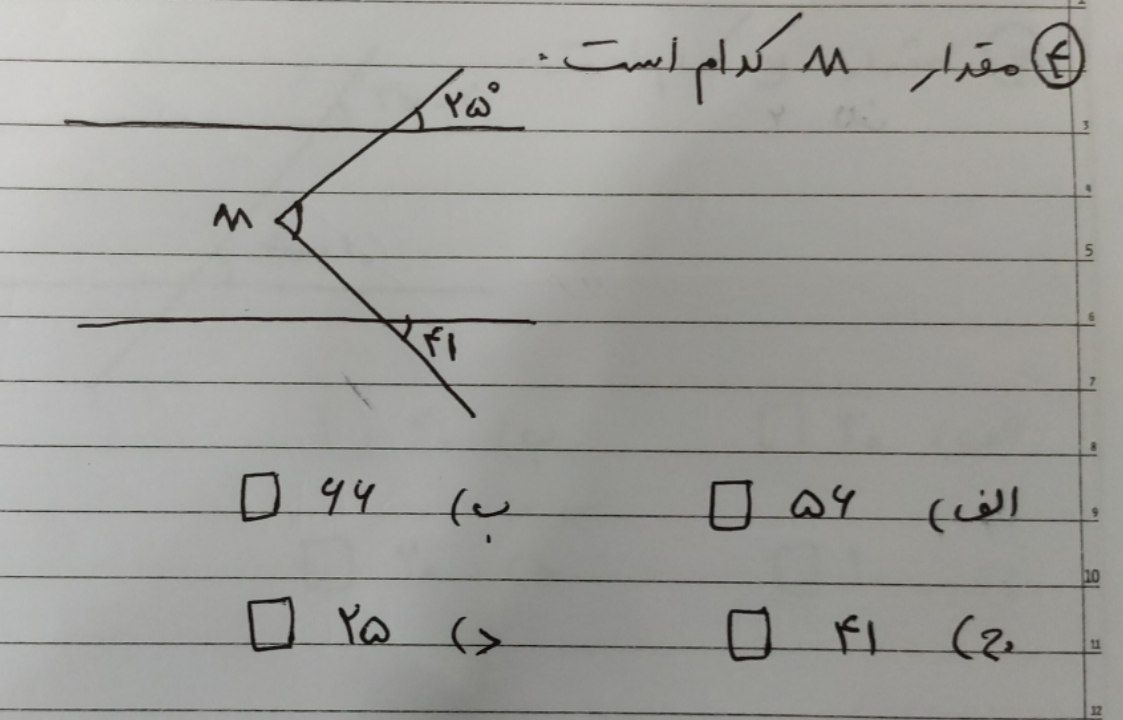 ۴ مقدار M کدام است.
۲۵°
M
۴۱
الف) ۵۶ ب) ۶۶
ج) ۴۱ د) ۲۵
3
4
5
6
7
8
9
10
11
12